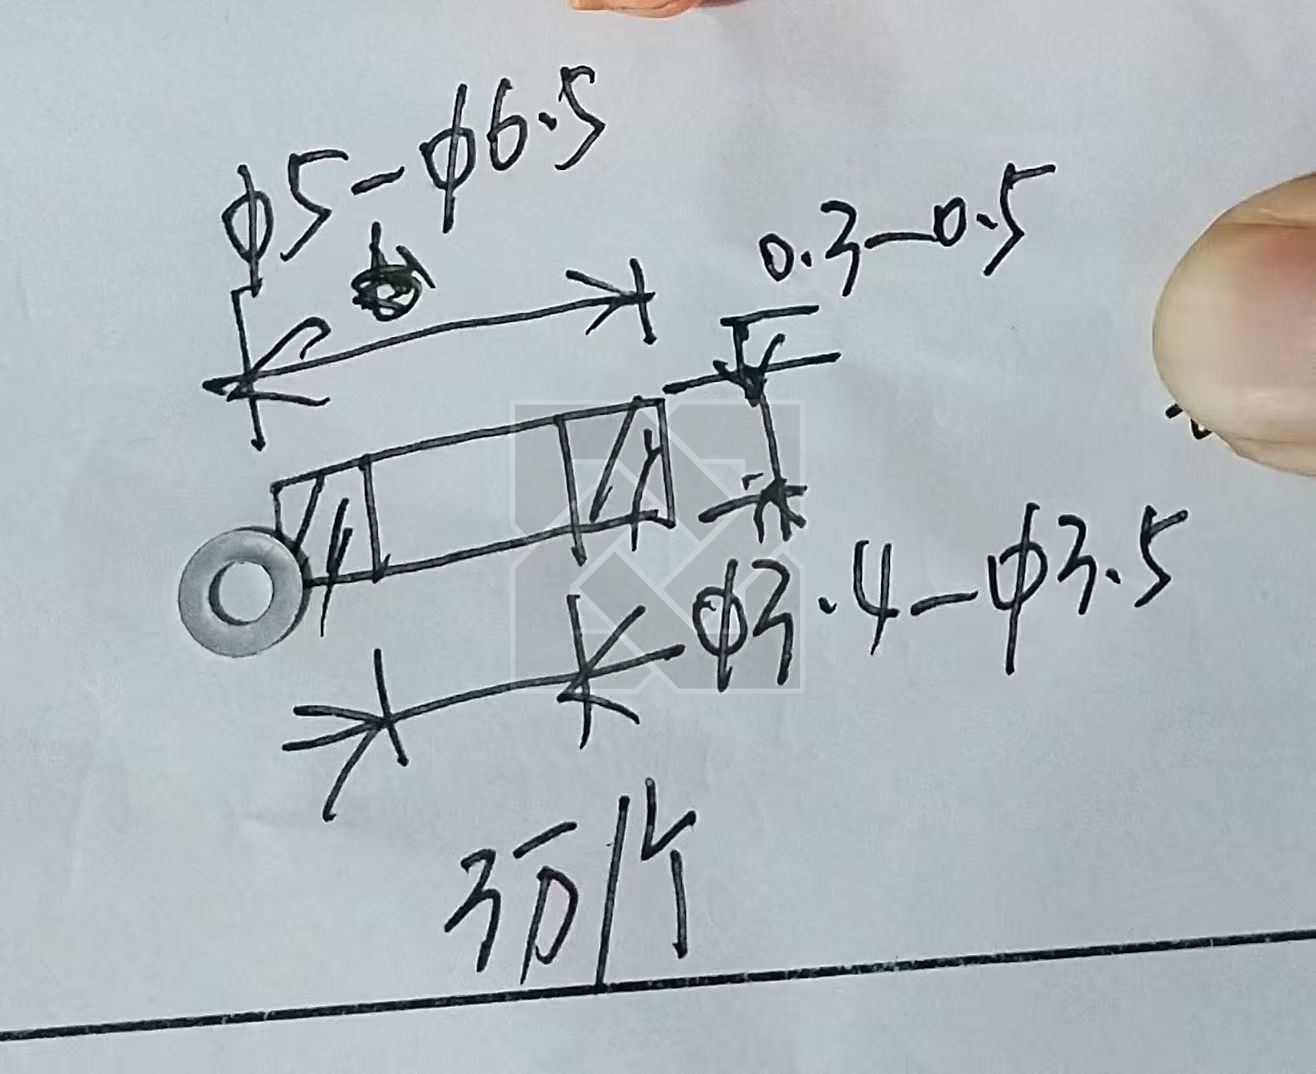 φ5-φ6.5
0.3-0.5
φ3.4-φ3.5
3万/个